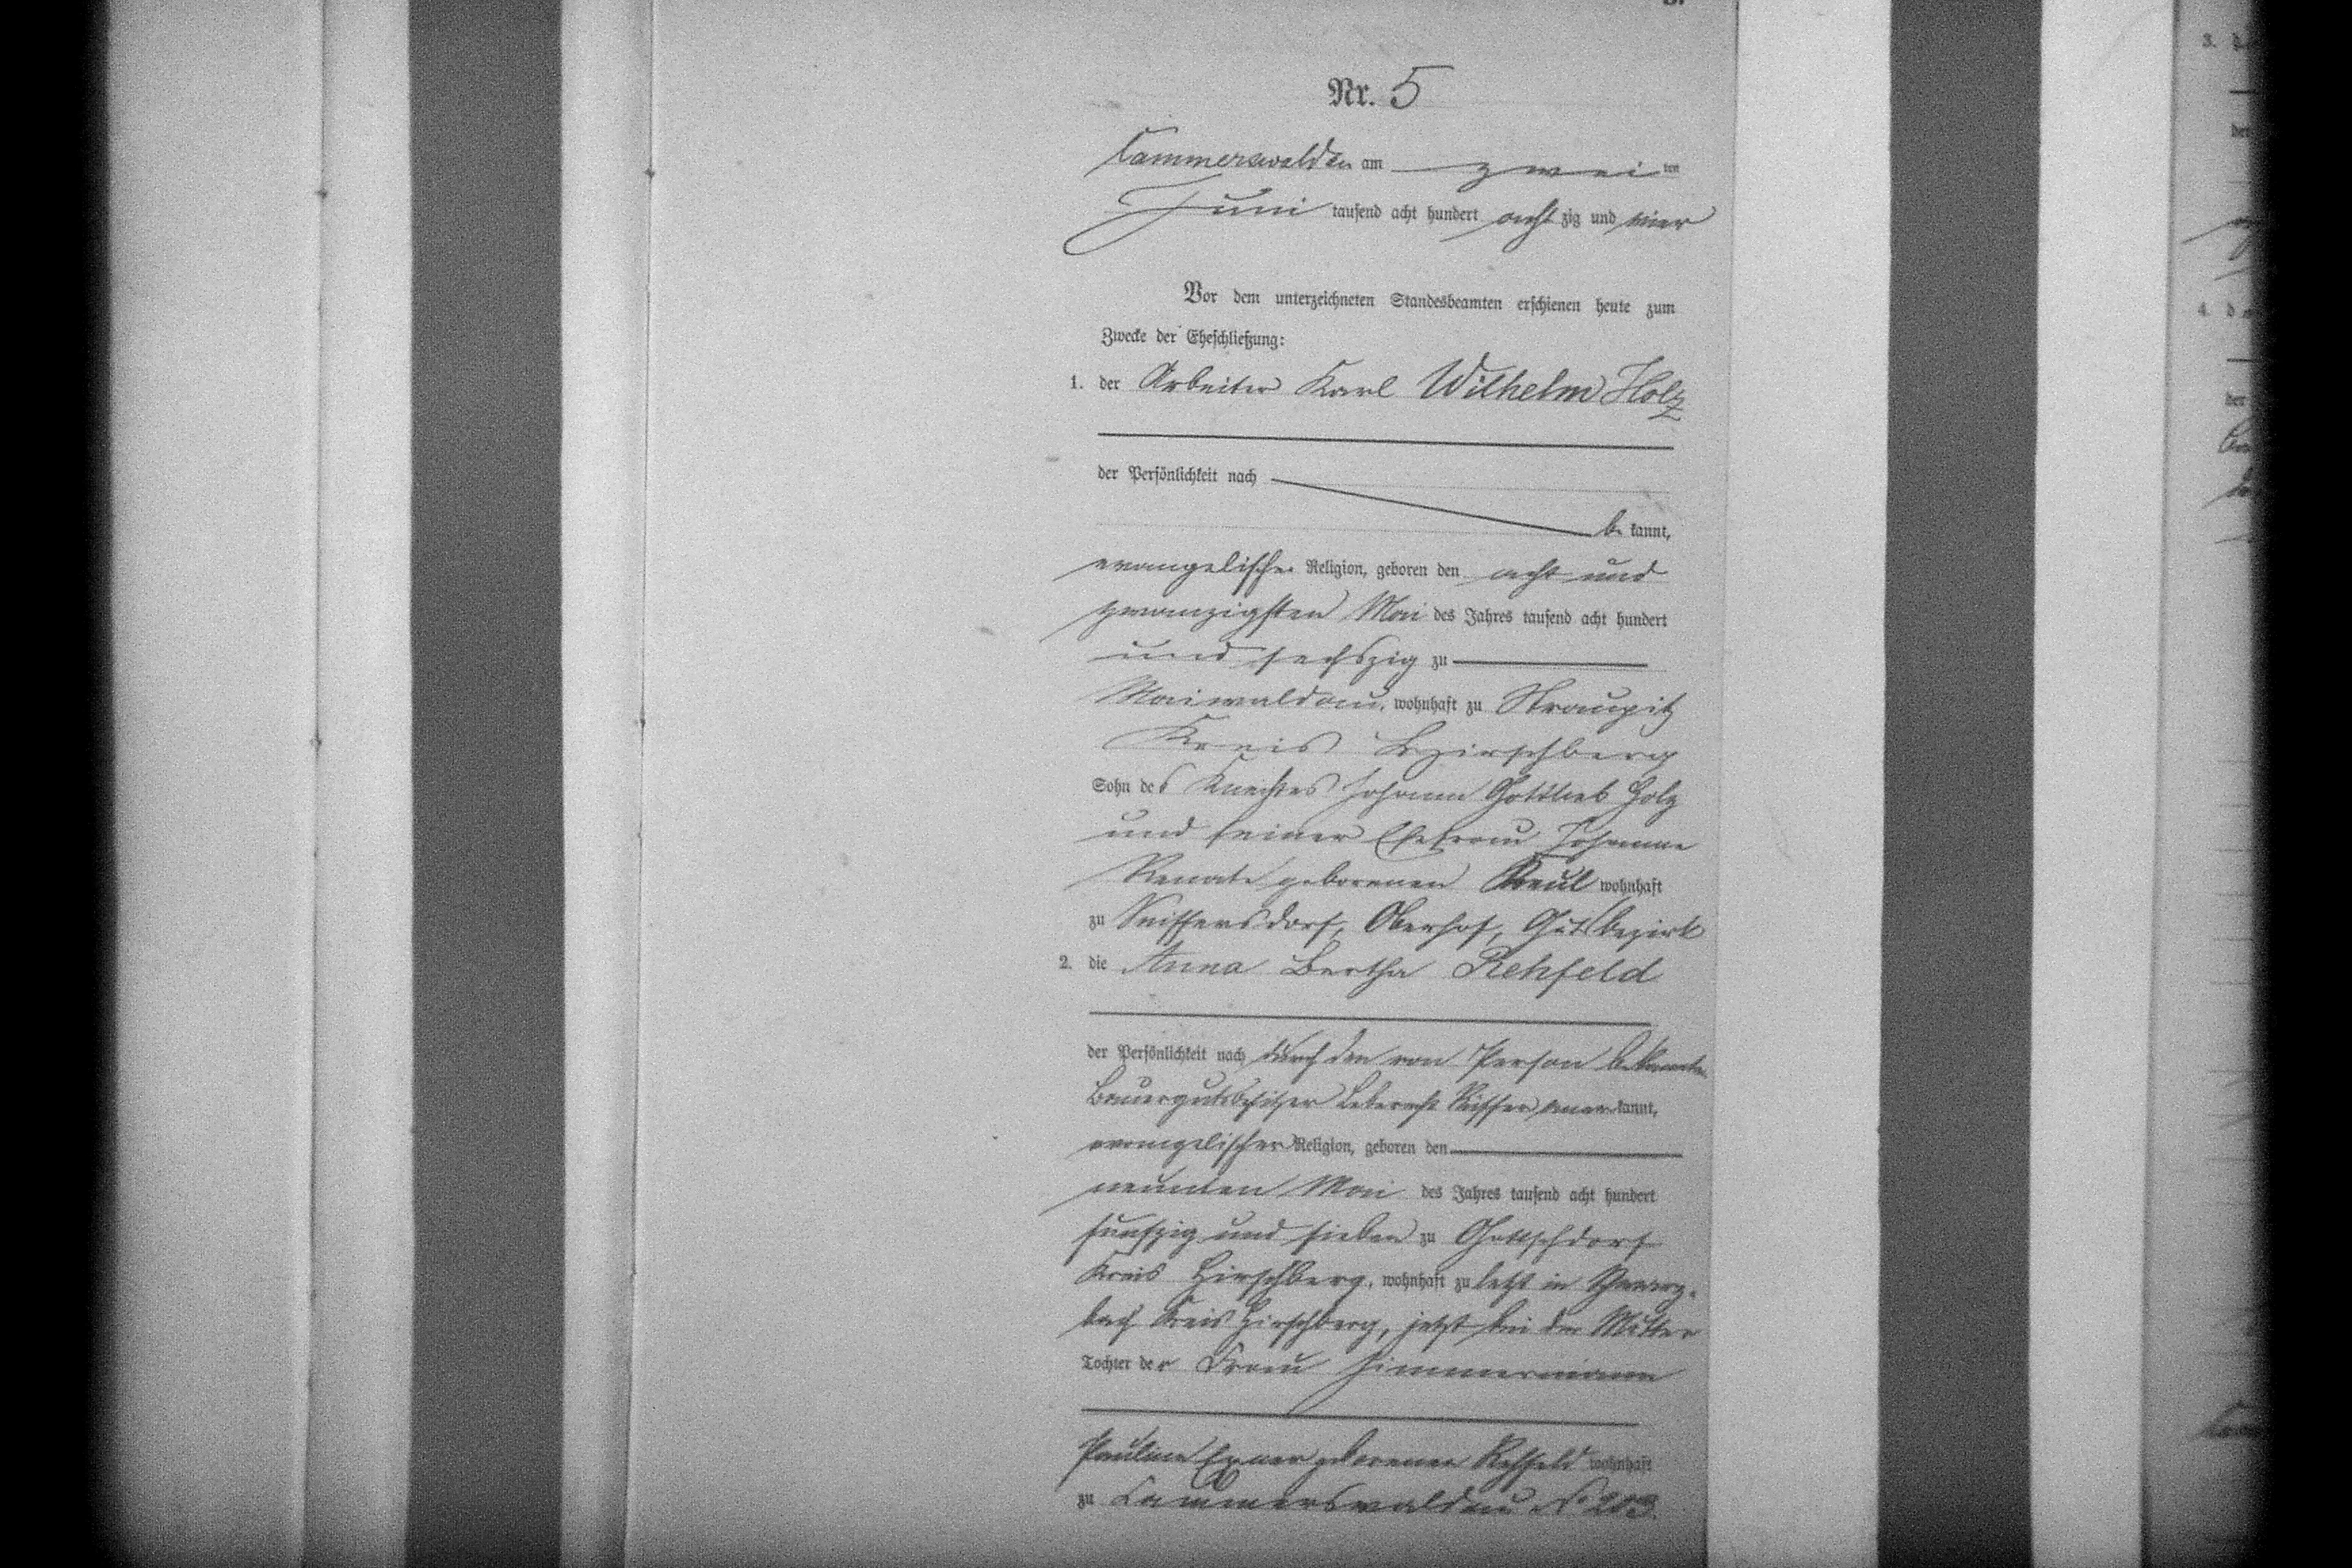 Nr. 5
Cammerswaldau am zwei ten
Juni tausend acht hundert acht zig und vier
Vor dem unterzeichneten Standesbeamten erschienen heute zum
Zwecke der Eheschließung:
1. der Arbeiter Karl Wilhelm Holz
der Persönlichkeit nach
be kannt,
evangelischer Religion, geboren den acht und
zwanzigsten Mai des Jahres tausend acht hundert
und sechszig zu
Maiwaldau, wohnhaft zu Straupitz
Kreis Hirschberg
Sohn des Knechtes Johann Gottlieb Holz
und seiner Ehefrau Johanne
Renate geborenen wohnhaft
zu Seiffersdorf, Oberhof, Gutsbezirk
2. die Anna Bertha Rehfeld
der Persönlichkeit nach durch den von Person bekannten
Bauergutsbesitzer Leberecht anerkannt,
evangelischer Religion, geboren den
neunten Mai des Jahres tausend acht hundert
funfzig und sieben zu Gottschdorf
Kreis Hirschberg, wohnhaft zu letzt in Schwarz-
bach Kreis Hirschberg, jetzt bei der Mutter
Tochter der Frau Zimmermann
Pauline Exner geborenen Rehfeld wohnhaft
zu Cammerswaldau No 203.
3.
der
4. d
der